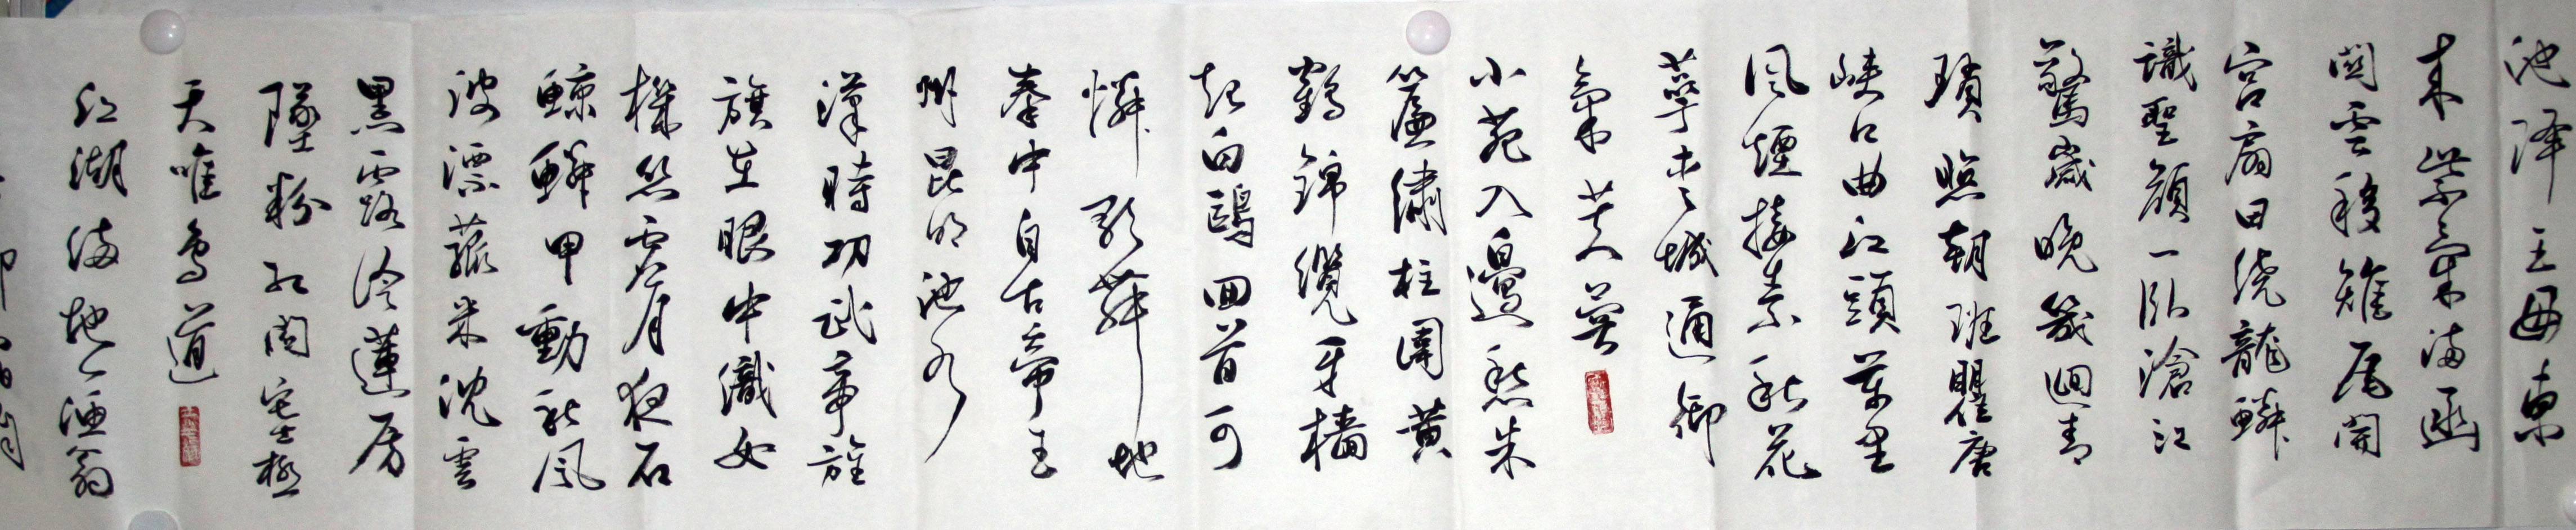 池降王母東
来紫氣滿函
関雲移雉尾開
宮扇日繞龍鱗
識聖顔一臥滄江
驚歲晚幾迴青
瑣照朝班瞿唐
峽口曲江頭萬里
風煙接素秋花
萼夾城通御
氣芙蓉
小苑入邊愁朱
簾繡柱圍黃
鶴錦纜牙檣
起白鷗回首可
憐歌舞地
秦中自古帝王
州昆明池水
漢時功武帝旌
旗在眼中織女
機絲虛月夜石
鯨鱗甲動秋風
波漂菰米沈雲
黑露冷蓮房
墜粉紅関塞極
天唯鳥道
江湖滿地一漁翁